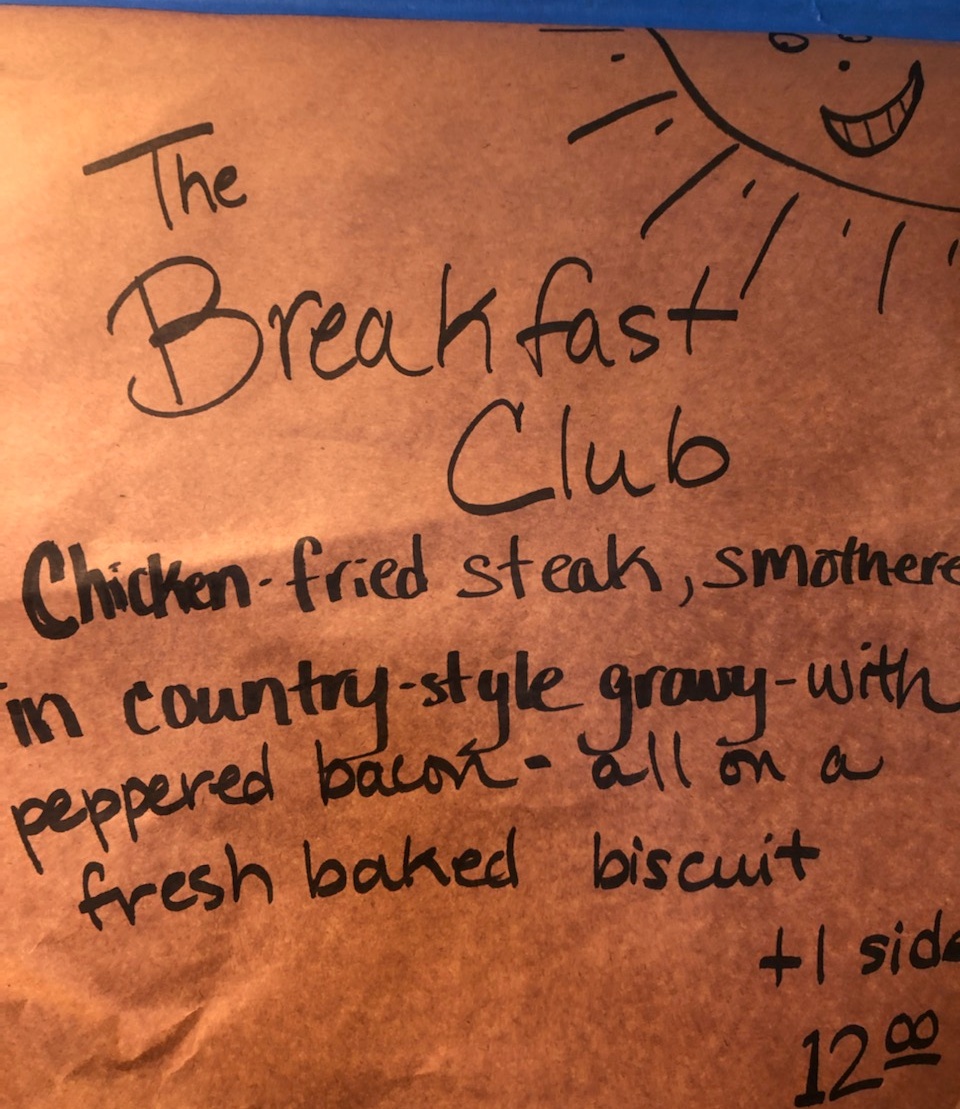 The
Breakfast
Club
Chicken-fried steak, smothere
in country-style gravy-with
peppered bacon - all on a
fresh baked biscuit
+1 side
12 00